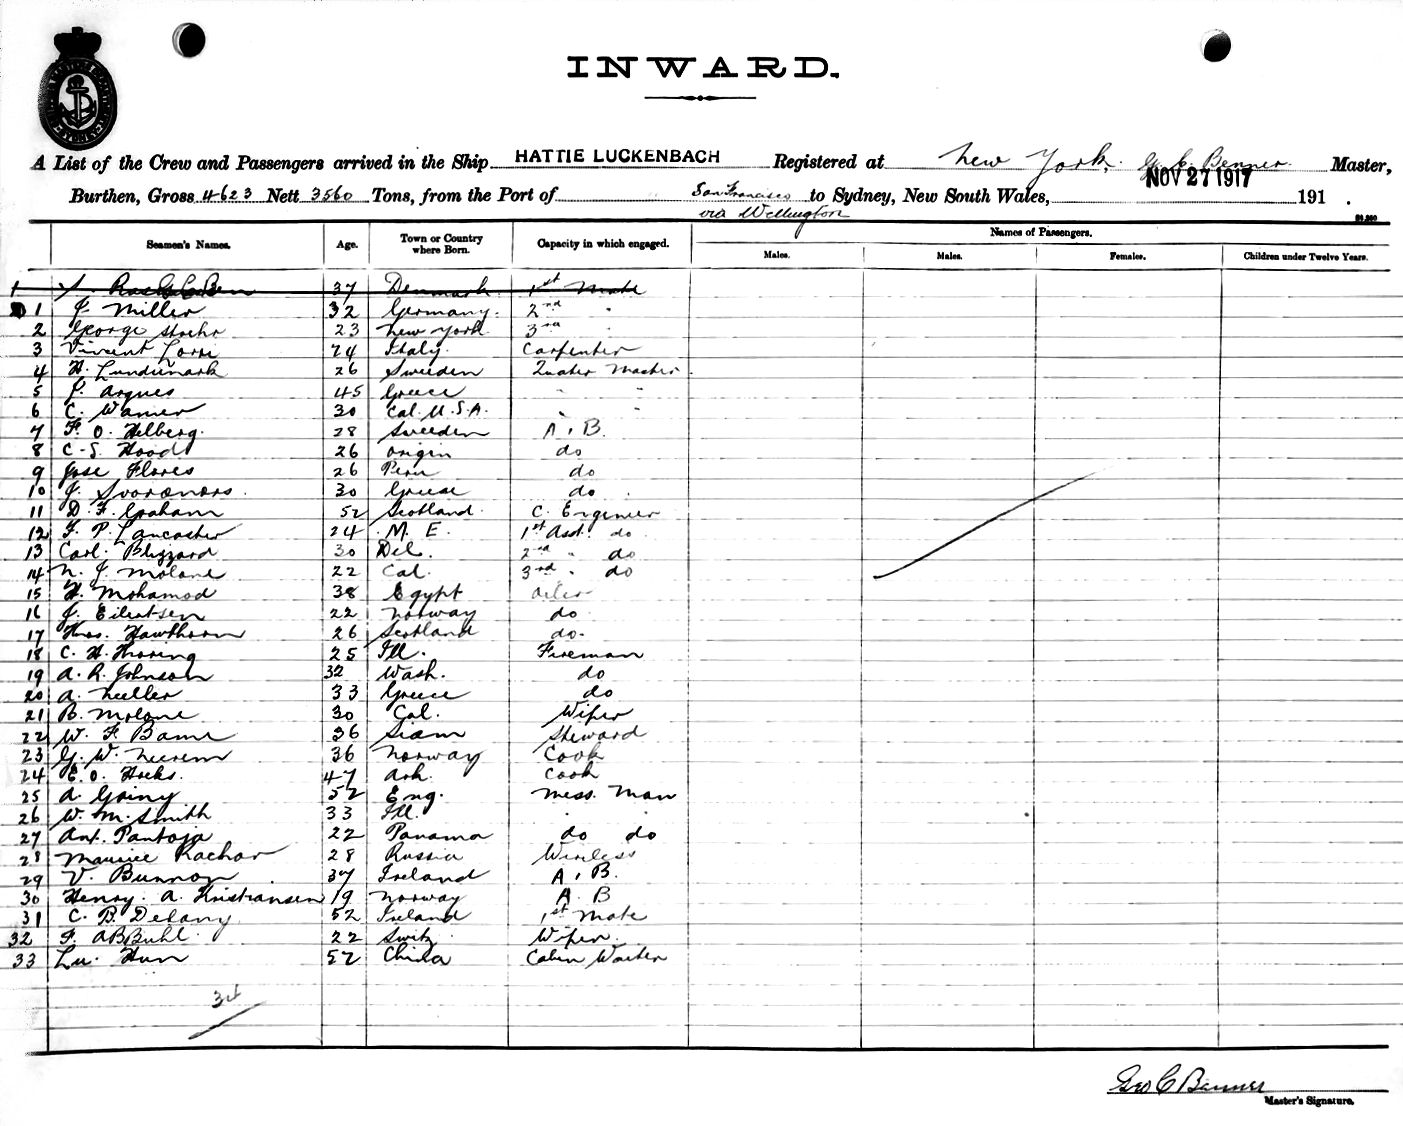 INWARD.
A List of the Crew and Passengers arrived in the Ship HATTIE LUCKENBACH Registered at New York. G. C. Benner Master,
NOV 27 1917
Burthen, Gross 4623 Nett 3560 Tons, from the Port of San Francisco to Sydney, New South Wales, 191 .
via Wellington
Names of Passengers.
Seamen's Names. Age. Town or Country where Born. Capacity in which engaged. Males. Males. Females. Children under Twelve Years.
1 37 Denmark 1st Mate
1 J. Miller 32 Germany. 2nd "
2 George 23 New York 3rd "
3 Vincent 24 Italy. Carpenter
4 H. Lundinark 26 Sweden Quater Master
5 J. Argues 45 Greece " "
6 C. Warner 30 Cal. U.S.A. " "
7 F. O. Helberg. 28 Sweeden A. B.
8 C. S. Hood 26 origin do
9 Jose Flores 26 Peru do
10 J. Svoronors. 30 Greese do
11 D. F. Graham 52 Scotland. C. Engineer
12 F. P. Lancaster 24 M. E. 1st Asst. do
13 Carl. Blizzard 30 Del. 2nd " do
14 N. J. Molone 22 Cal. 3rd " do
15 H. Mohamod 38 Egypt oiler
16 J. Eilertsen 22 Norway do
17 Thos. Hawthorn 26 Scotland do.
18 C. H. Thoring 25 Ill. Fireman
19 A. R. Johnson 32 Wash. do
20 A. 33 Greece do
21 B. Molone 30 Cal. Wiper
22 W. F. Bame 36 Siam Steward
23 G. W. 36 Norway Cook
24 E. O. Hicks. 47 Ark. Cook
25 A. Gainy 52 Eng. Mess. Man
26 W. M. Smith 33 Ill. " "
27 Ant. Pantoja 22 Panama do do
28 Maurice Rachor 28 Russia Wireless
29 V. Bunnon 37 Ireland A. B.
30 Henry. A. Kristiansen 19 Norway A. B
31 C. B. Delany 52 Ireland 1st Mate
32 F. A B Buhl. 22 Switz. Wiper.
33 Lu. Hun 52 China Cabin Waiter
34
Geo C Benner
Master's Signature.